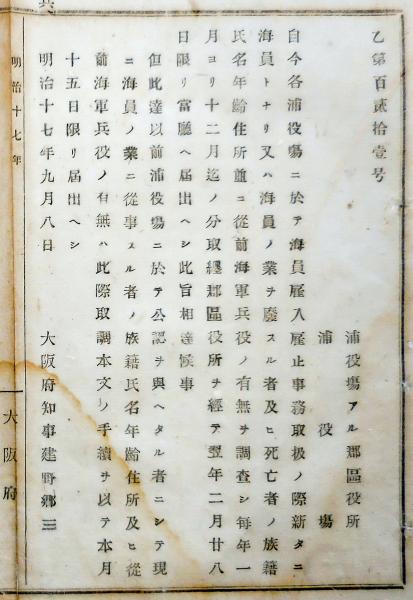 乙第百貳拾壹号
浦役場アル郡區役所
浦役場
自今各浦役場ニ於テ海員雇入雇止事務取扱ノ際新タニ
海員トナリ又ハ海員ノ業ヲ廢スル者及ヒ死亡者ノ族籍
氏名年齡住所並ニ從前海軍兵役ノ有無ヲ調査シ毎年一
月ヨリ十二月迄ノ分取纒郡區役所ヲ經テ翌年二月廿八
日限リ當廳ヘ届出ヘシ此旨相達候事
但此達以前浦役場ニ於テ公認ヲ與ヘタル者ニシテ現
ニ海員ノ業ニ從事スル者ノ族籍氏名年齡住所及ヒ從
前海軍兵役ノ有無ハ此際取調本文ノ手續ヲ以テ本月
十五日限リ届出ヘシ
明治十七年九月八日
大阪府知事建野郷三
明治十七年
大阪府